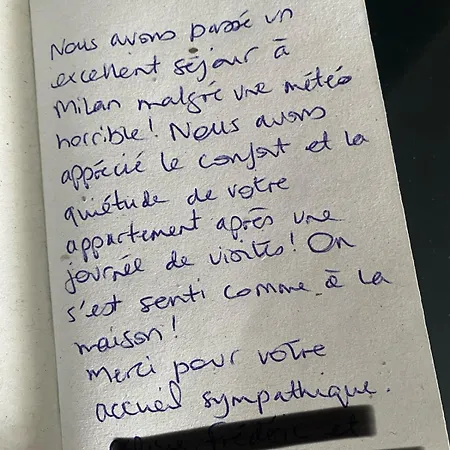 Nous avons passé un
excellent séjour à
Milan malgré une météo
horrible! Nous avons
apprécié le confort et la
quiétude de votre
appartement après une
journée de visites! On
s'est senti comme à la
maison!
Merci pour votre
accueil sympathique.